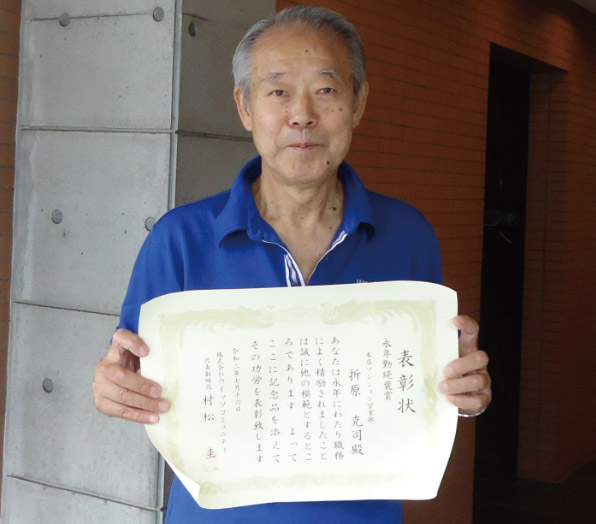 表彰状
永年勤続褒賞
本店マンション営業部
折原 克司殿
あなたは永年にわたり職務
によく積励されましたこと
は誠に他の模範とするとこ
ろであります よって
ここに記念品を添えて
その功労を表彰致します
令和二年七月十六日
株式会社ウィッツコミュニティ
代表取締役 村松 圭